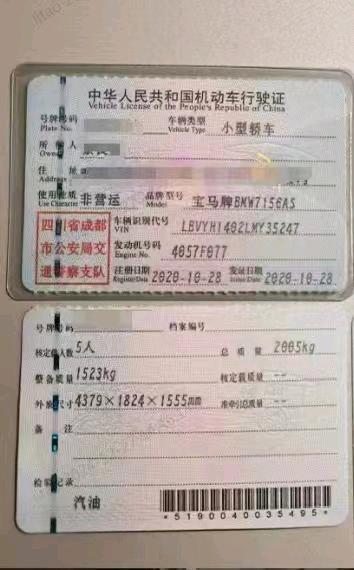 中华人民共和国机动车行驶证
Vehicle License of the People's Republic of China
号牌号码
Plate No.
车辆类型 小型轿车
Vehicle Type
所有人
住址
使用性质 非营运
Use Character
品牌型号 宝马牌BMW7156AS
四川省成都
市公安局交
通警察支队
车辆识别代号 LBVYH1402LMY35247
VIN
发动机号码 4057F077
Engine No.
注册日期 2020-10-28
Register Date
发证日期 2020-10-28
Issue Date
号牌号码
档案编号
核定载人数 5人
总质量 2005kg
整备质量 1523kg
核定载质量 --
外廓尺寸 4379×1824×1555mm
准牵引总质量 --
备注
检验记录
汽油
*5190040035495*